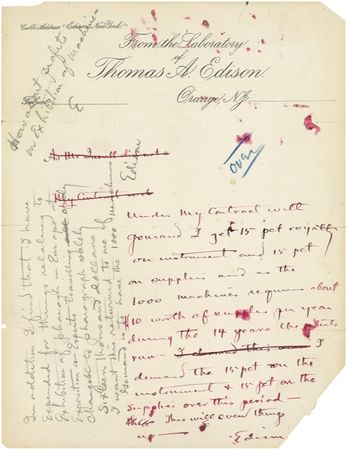 Cable Address "Edison, New York"
From the Laboratory
of
Thomas A. Edison,
Orange, N.J.
How about rights
on Exhibition of Machines
E
over
Under My Contract with
Gouraud I get 15 pct royalty
on instrument and 15 pct
on supplies and as the
1000 machines require about
$10 worth of supplies per year
during the 14 years the
runs I
demand the 15 pct on the
instrument & 15 pct on the
supplies over this period—
This will even things
up—
Edison
In addition I find that I have
Expended for things relating to
Exhibition of phonogh Europe &
Exposition & experts travelling
Chargeable to phonograph
Sixteen Thousand dollars
I want this returned to me if
Gouraud is to have the 1000 machines
Edison